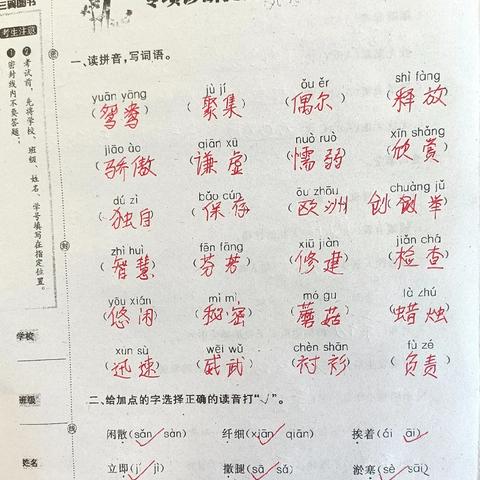 三舅图书
考生注意
❶密封线内不要答题；
❷考试前，先将学校、班级、姓名、学号填写在指定位置。
密
封
线
学校
班级
姓名
一、读拼音，写词语。
yuān yāng jù jí ǒu ěr shì fàng
（鸳鸯）（聚集）（偶尔）（释放）
jiāo ào qiān xū nuò ruò xīn shǎng
（骄傲）（谦虚）（懦弱）（欣赏）
dú zì bǎo cún ōu zhōu chuàng jǔ
（独自）（保存）（欧洲）创举
zhì huì fēn fāng xiū jiàn jiǎn chá
（智慧）（芬芳）（修建）（检查）
yōu xián mì mì mó gu là zhú
（悠闲）（秘密）（蘑菇）（蜡烛）
xùn sù wēi wǔ chèn shān fù zé
（迅速）（威武）（衬衫）（负责）
二、给加点的字选择正确的读音打“√”。
闲散(sǎn sàn) 纤细(xiān qiān) 挨着(āi āi)
立即(jí jì) 撒腿(sā sǎ) 淤塞(sè sāi)